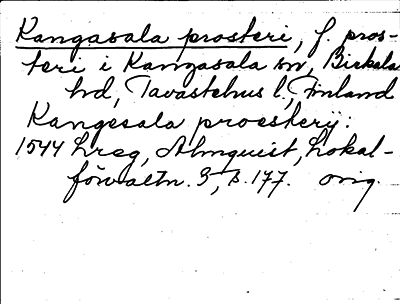 Kangasala prosteri, f. pros-
teri i Kangasala sn, Birkala
hd, Tavastehus l., Finland
Kangesala proesterij:
1544 hreg, Almquist, Lokal-
förvaltn. 3, s. 177. orig.